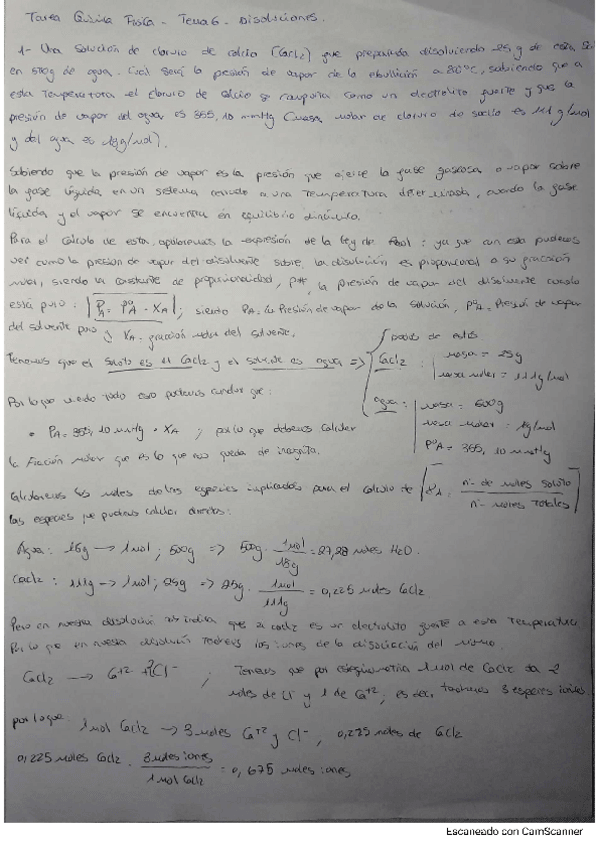 Tarea Química Física - Tema 6 - Disoluciones.
1- Una solución de cloruro de calcio (CaCl2) que preparada disolviendo 25 g de esta
en 500g de agua. Cual será la presión de vapor de la ebullición a 80°C, sabiendo que a
esta temperatura el cloruro de calcio se comporta como un electrolito fuerte y que la
presión de vapor del agua es 355,10 mmHg (masa molar de cloruro de es 111 g/mol
y del agua es 18g/mol).
Sabiendo que la presión de vapor es la presión que ejerce la fase gaseosa o vapor sobre
la fase líquida en un sistema cerrado a una temperatura determinada, cuando la fase
líquida y el vapor se encuentra en equilibrio dinámico.
Para el cálculo de esta, aplicaremos la expresión de la ley de : ya que con esta podemos
ver como la presión de vapor del disolvente sobre la disolución es proporcional a su fracción
molar, siendo la constante de proporcionalidad, la presión de vapor del disolvente cuando
está puro: PA = PºA · XA ; siendo PA = la Presión de vapor de la solución, PºA = Presión de vapor
del solvente puro y XA = fracción molar del solvente.
Tenemos que el soluto es el CaCl2 y el solvente es agua =>
datos de estos
CaCl2 : masa = 25g
masa molar = 111g/mol
agua : masa = 500g
masa molar = g/mol
PºA = 355,10 mmHg
Por lo que todo esto podemos que:
• PA = 355,10 mmHg · XA ; por lo que debemos calcular
la fracción molar que es lo que nos queda de incógnita.
Calcularemos los moles de las especies implicadas para el cálculo de XA = nº de moles soluto / nº moles totales
las especies que podemos calcular directas:
Agua: → 1mol ; 500g => 500g · 1mol / 18g = 27,28 moles H2O.
CaCl2 : 111g → 1mol ; 25g => 25g · 1mol / 111g = 0,225 moles CaCl2
Pero en nuestra disolución indica que el CaCl2 es un electrolito fuerte a esta temperatura
Por lo que en nuestra disolución tendremos los iones de la disociación del mismo.
CaCl2 → Ca+2 + 2Cl- ; Tenemos que por estequiometría 1 mol de CaCl2 da 2
moles de Cl- y 1 de Ca+2 ; es decir tendremos 3 especies iónicas
por lo que: 1 mol CaCl2 → 3 moles Ca+2 y Cl- , 0,225 moles de CaCl2
0,225 moles CaCl2 · 3 moles iones / 1 mol CaCl2 = 0,675 moles iones
Escaneado con CamScanner